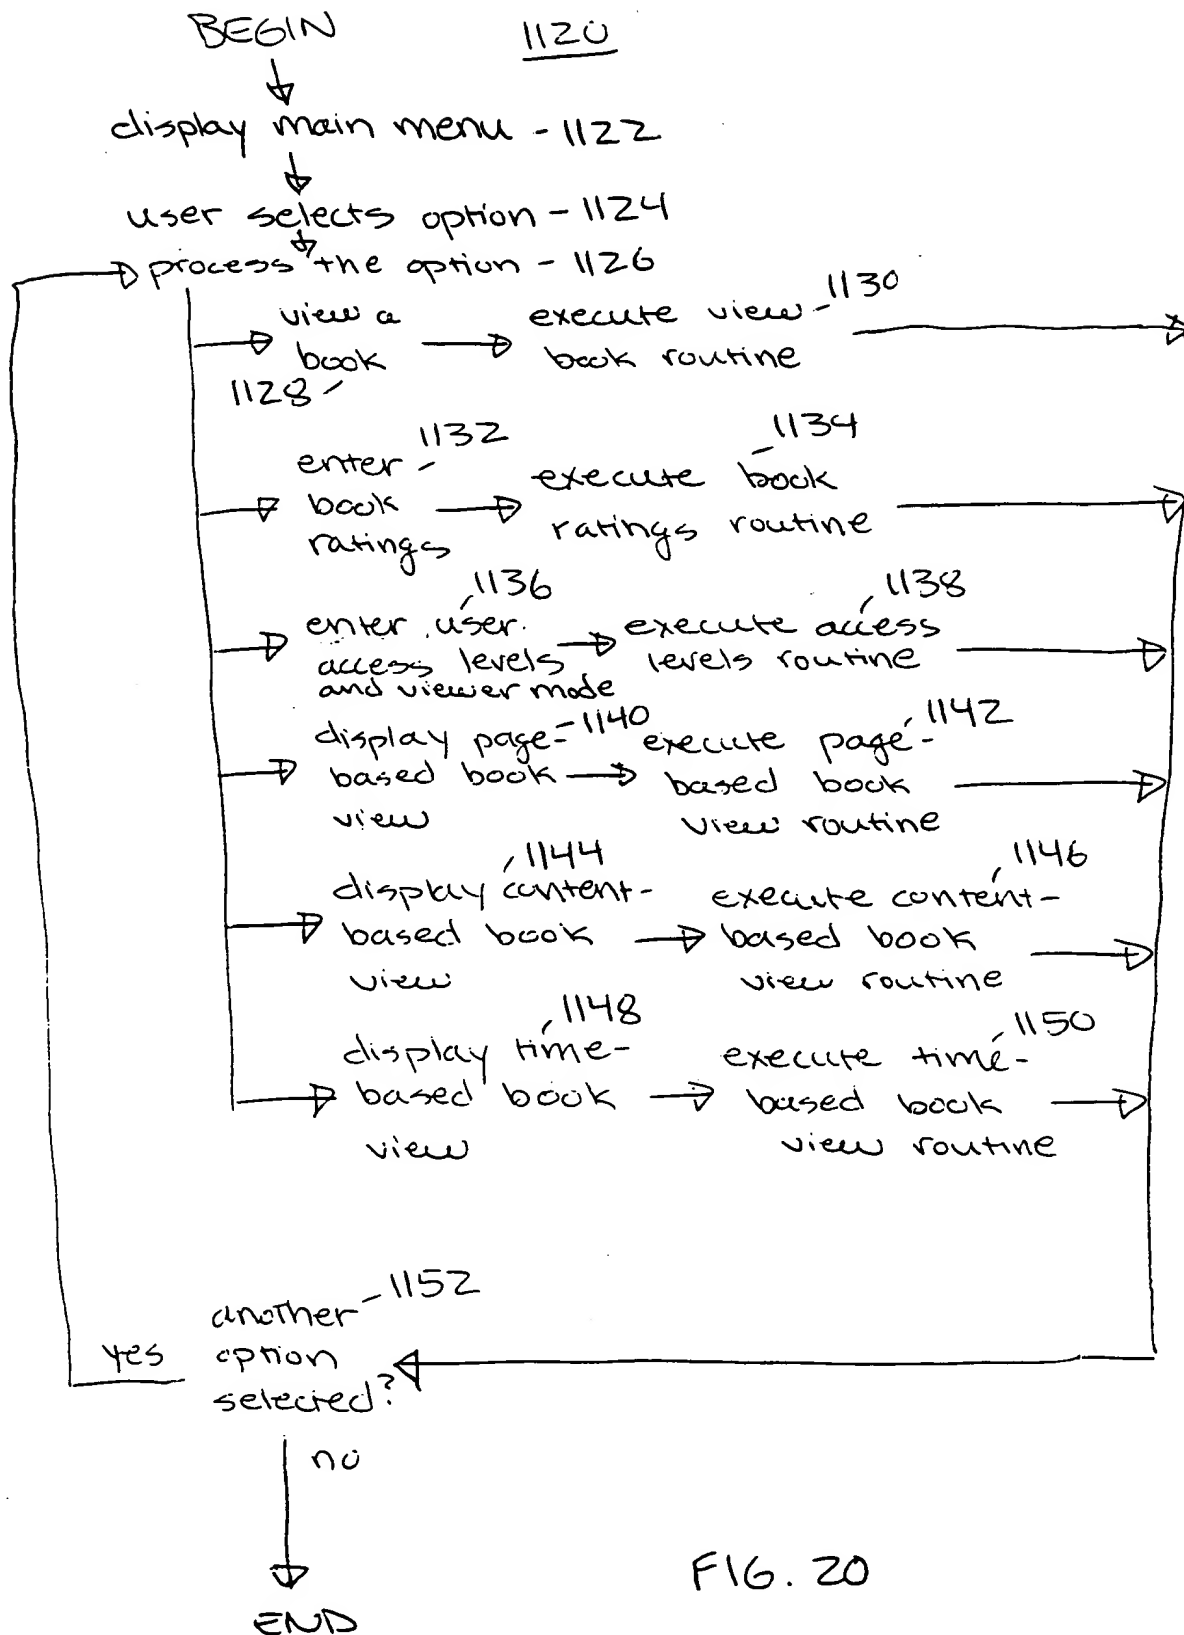 BEGIN 1120
display main menu - 1122
user selects option - 1124
process the option - 1126
view a
book
1128
execute view 1130
book routine
enter 1132
book
ratings
execute book 1134
ratings routine
1136
enter user
access levels
and viewer mode
1138
execute access
levels routine
display page- 1140
based book
view
execute page- 1142
based book
view routine
1144
display content-
based book
view
1146
execute content-
based book
view routine
1148
display time-
based book
view
1150
execute time-
based book
view routine
another 1152
option
selected?
yes
no
END
FIG. 20